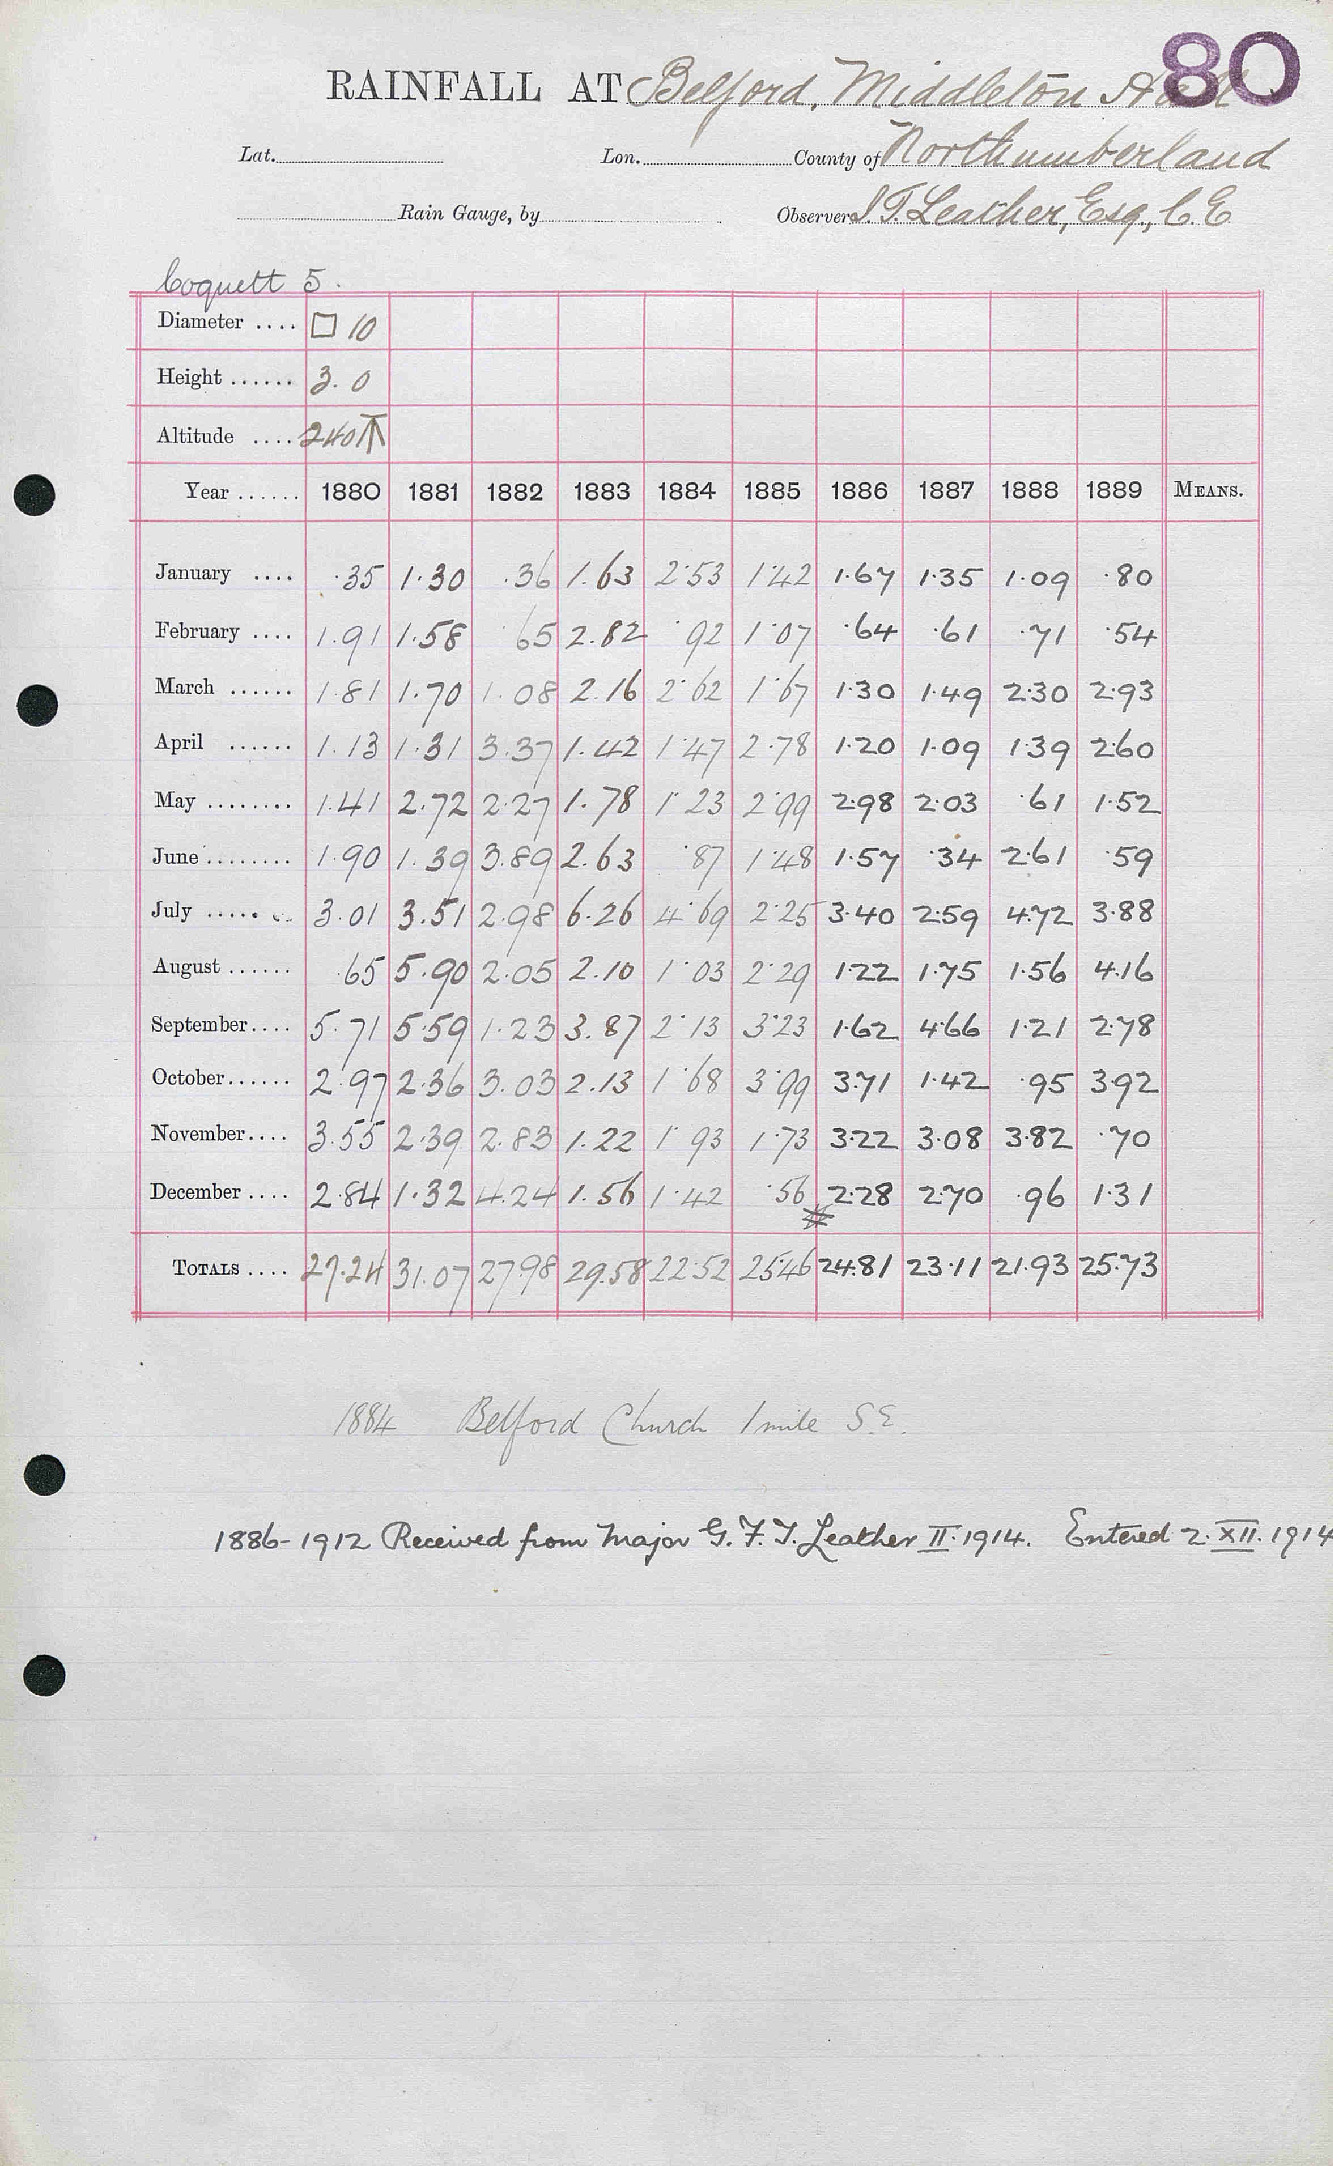 80
RAINFALL AT Belford, Middleton Hall
Lat. Lon. County of Northumberland
Rain Gauge, by Observer J. T. Leather, Esq., C. E
Coquett 5.
Diameter .... □ 10
Height ...... 3. 0
Altitude .... 240
Year ...... 1880 1881 1882 1883 1884 1885 1886 1887 1888 1889 MEANS.
January .... ·35 1·30 ·36 1.63 2·53 1·42 1·67 1·35 1·09 ·80
February .... 1.91 1.58 65 2.82 ·92 1·07 ·64 ·61 ·71 ·54
March ...... 1.81 1.70 1.08 2.16 2·62 1·67 1·30 1·49 2·30 2·93
April ...... 1.13 1.31 3.37 1.42 1·47 2·78 1·20 1·09 1·39 2·60
May ........ 1.41 2.72 2.27 1.78 1·23 2·99 2·98 2·03 ·61 1·52
June ........ 1.90 1.39 3.89 2.63 ·87 1·48 1·57 ·34 2·61 ·59
July ..... 3.01 3.51 2.98 6.26 4·69 2·25 3·40 2·59 4·72 3·88
August ...... .65 5.90 2.05 2.10 1·03 2·29 1·22 1·75 1·56 4·16
September.... 5.71 5.59 1.23 3.87 2·13 3·23 1·62 4·66 1·21 2·78
October...... 2.97 2.36 3.03 2.13 1·68 3·99 3·71 1·42 ·95 3·92
November.... 3.55 2.39 2.83 1.22 1·93 1·73 3·22 3·08 3·82 ·70
December .... 2.84 1.32 4.24 1.56 1·42 ·56 2·28 2·70 ·96 1·31
TOTALS .... 27.24 31.07 27.98 29.58 22·52 25·46 24·81 23·11 21·93 25·73
1884 Belford Church 1 mile S.E.
1886-1912 Received from Major G. F. T. Leather II.1914. Entered 2.XII.1914